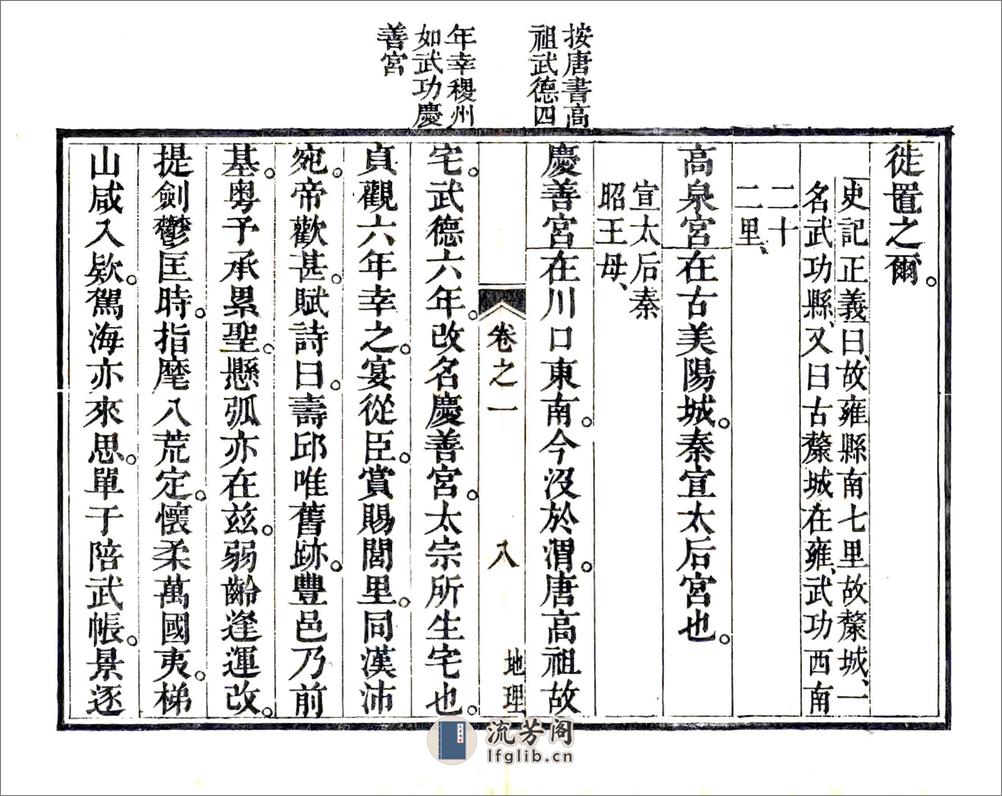 按唐書高
祖武德四
年幸稷州
如武功慶
善宮
徙置之爾。
史記正義曰、故雍縣南七里故斄城、一
名武功縣、又曰古斄城在雍、武功西南
二十
二里、
高泉宮在古美陽城。秦宣太后宮也。
宣太后秦
昭王母、
慶善宮在川口東南。今沒於渭。唐高祖故
卷之一 八 地理
宅。武德六年。改名慶善宮。太宗所生宅也。
貞觀六年幸之。宴從臣。賞賜閭里。同漢沛
宛。帝歡甚。賦詩曰。壽邱唯舊跡。豐邑乃前
基。粵予承累聖。懸弧亦在玆。弱齡逢運改。
提劍鬱匡時。指麾八荒定。懷柔萬國夷。梯
山咸入欵。駕海亦來思。單于陪武帳。景逐
流芳阁
lfglib.cn